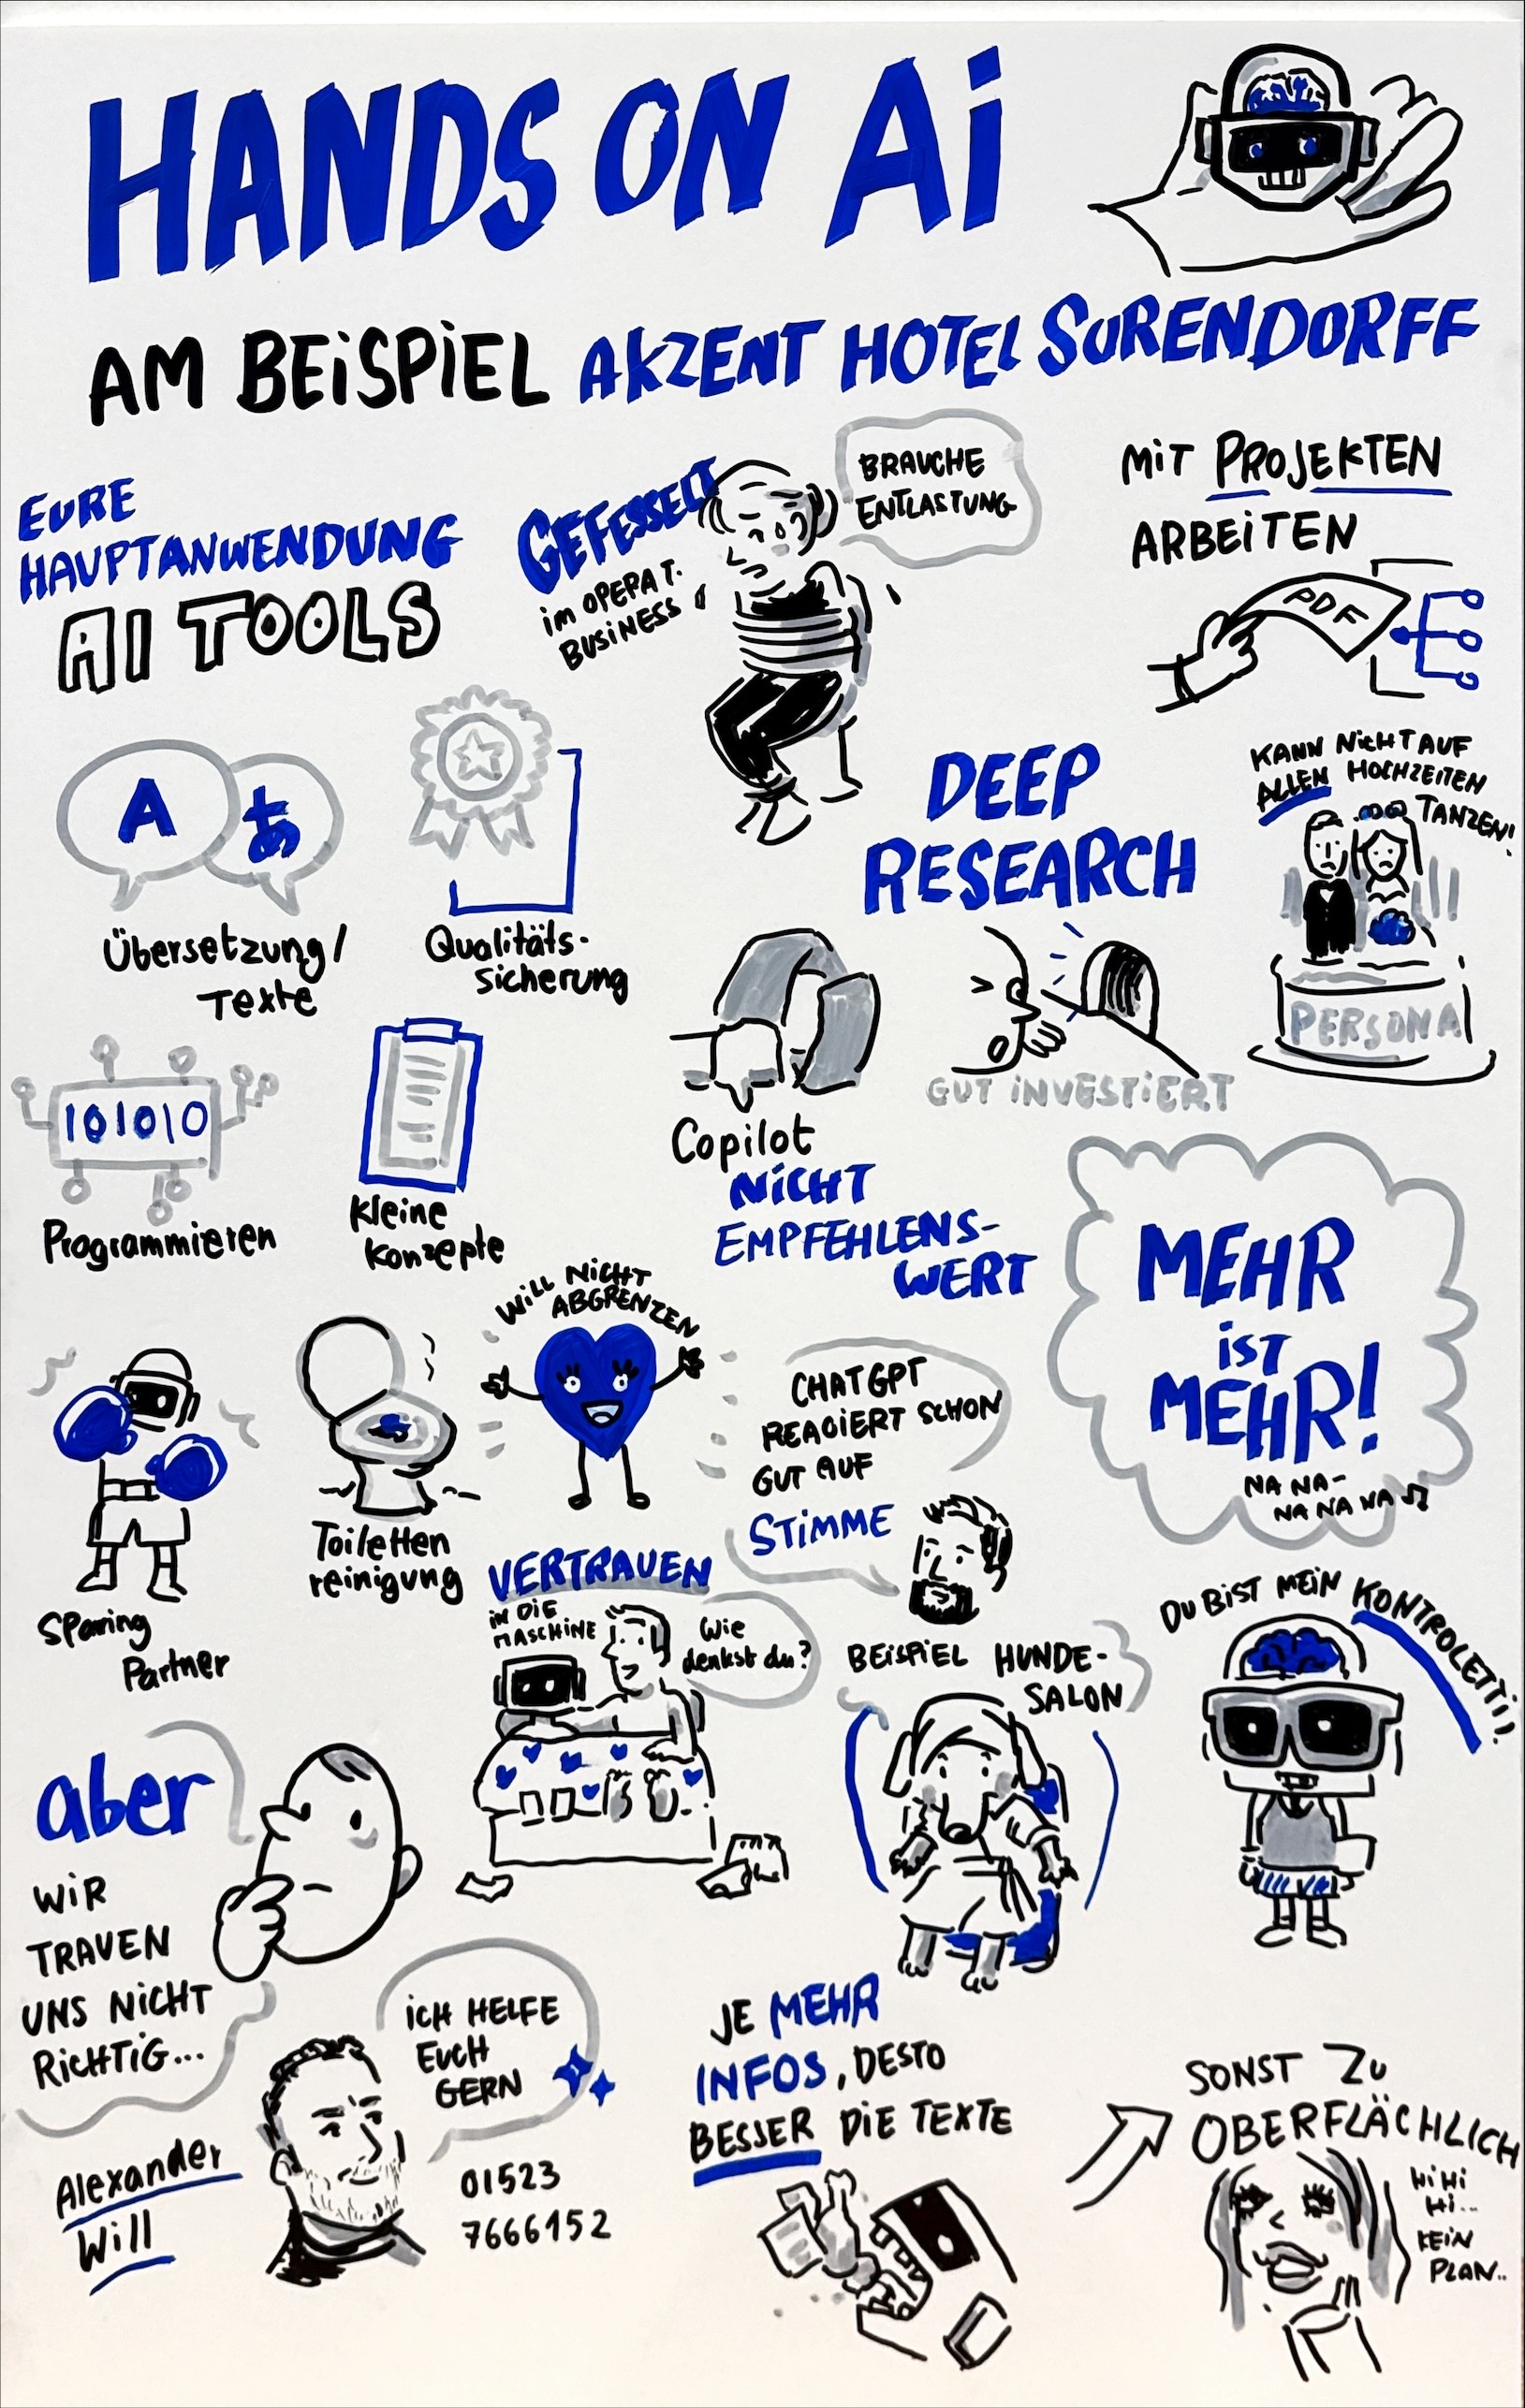 HANDS ON Ai
AM BEiSPiEL AKZENT HOTEL SURENDORFF
EURE
HAUPTANWENDUNG
AI TOOLS
GEFESSELT
im OPERAT.
BUSiNESS
BRAUCHE
ENTLASTUNG
MiT PROJEKTEN
ARBEiTEN
PDF
A
あ
Übersetzung/
Texte
Qualitäts-
sicherung
DEEP
RESEARCH
GUT iNVESTiERT
KANN NiCHT AUF
ALLEN HOCHZEiTEN
TANZEN!
PERSONA
101010
Programmieren
Kleine
Konzepte
Copilot
NiCHT
EMPFEHLENS-
WERT
MEHR
iST
MEHR!
NA NA-
NA NA NA ♫
Sparing
Partner
Toiletten
reinigung
WiLL NiCHT
ABGRENZEN
CHATGPT
REAGiERT SCHON
GUT AUF
STiMME
VERTRAUEN
iN DiE
MASCHiNE
Wie
denkst du?
BEiSPiEL HUNDE-
SALON
DU BiST MEiN KONTROLETTi!
aber
WiR
TRAUEN
UNS NiCHT
RiCHTiG...
iCH HELFE
EUCH
GERN
Alexander
Will
01523
7666152
JE MEHR
INFOS, DESTO
BESSER DiE TEXTE
SONST ZU
OBERFLÄCHLICH
Hi Hi
Hi...
KEiN
PLAN..